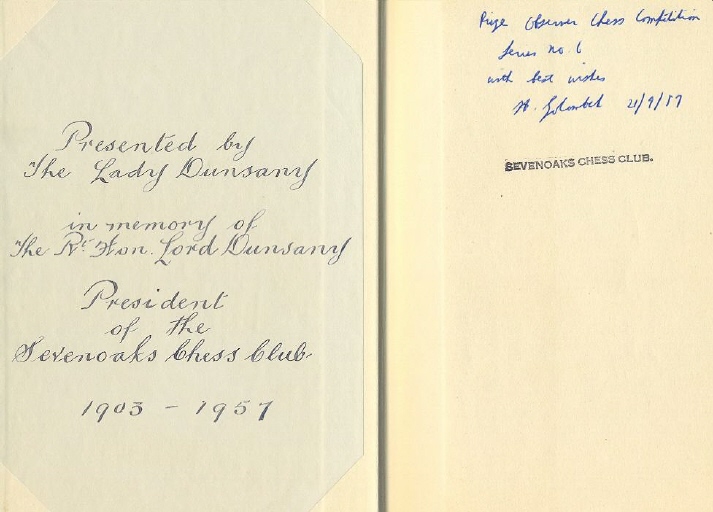 Presented by
The Lady Dunsany
in memory of
The Rt. Hon. Lord Dunsany
President
of the
Sevenoaks Chess Club
1903 - 1957
Prize Observer Chess Competition
Series No. 6
with best wishes
H. Golombek 21/9/57
SEVENOAKS CHESS CLUB.